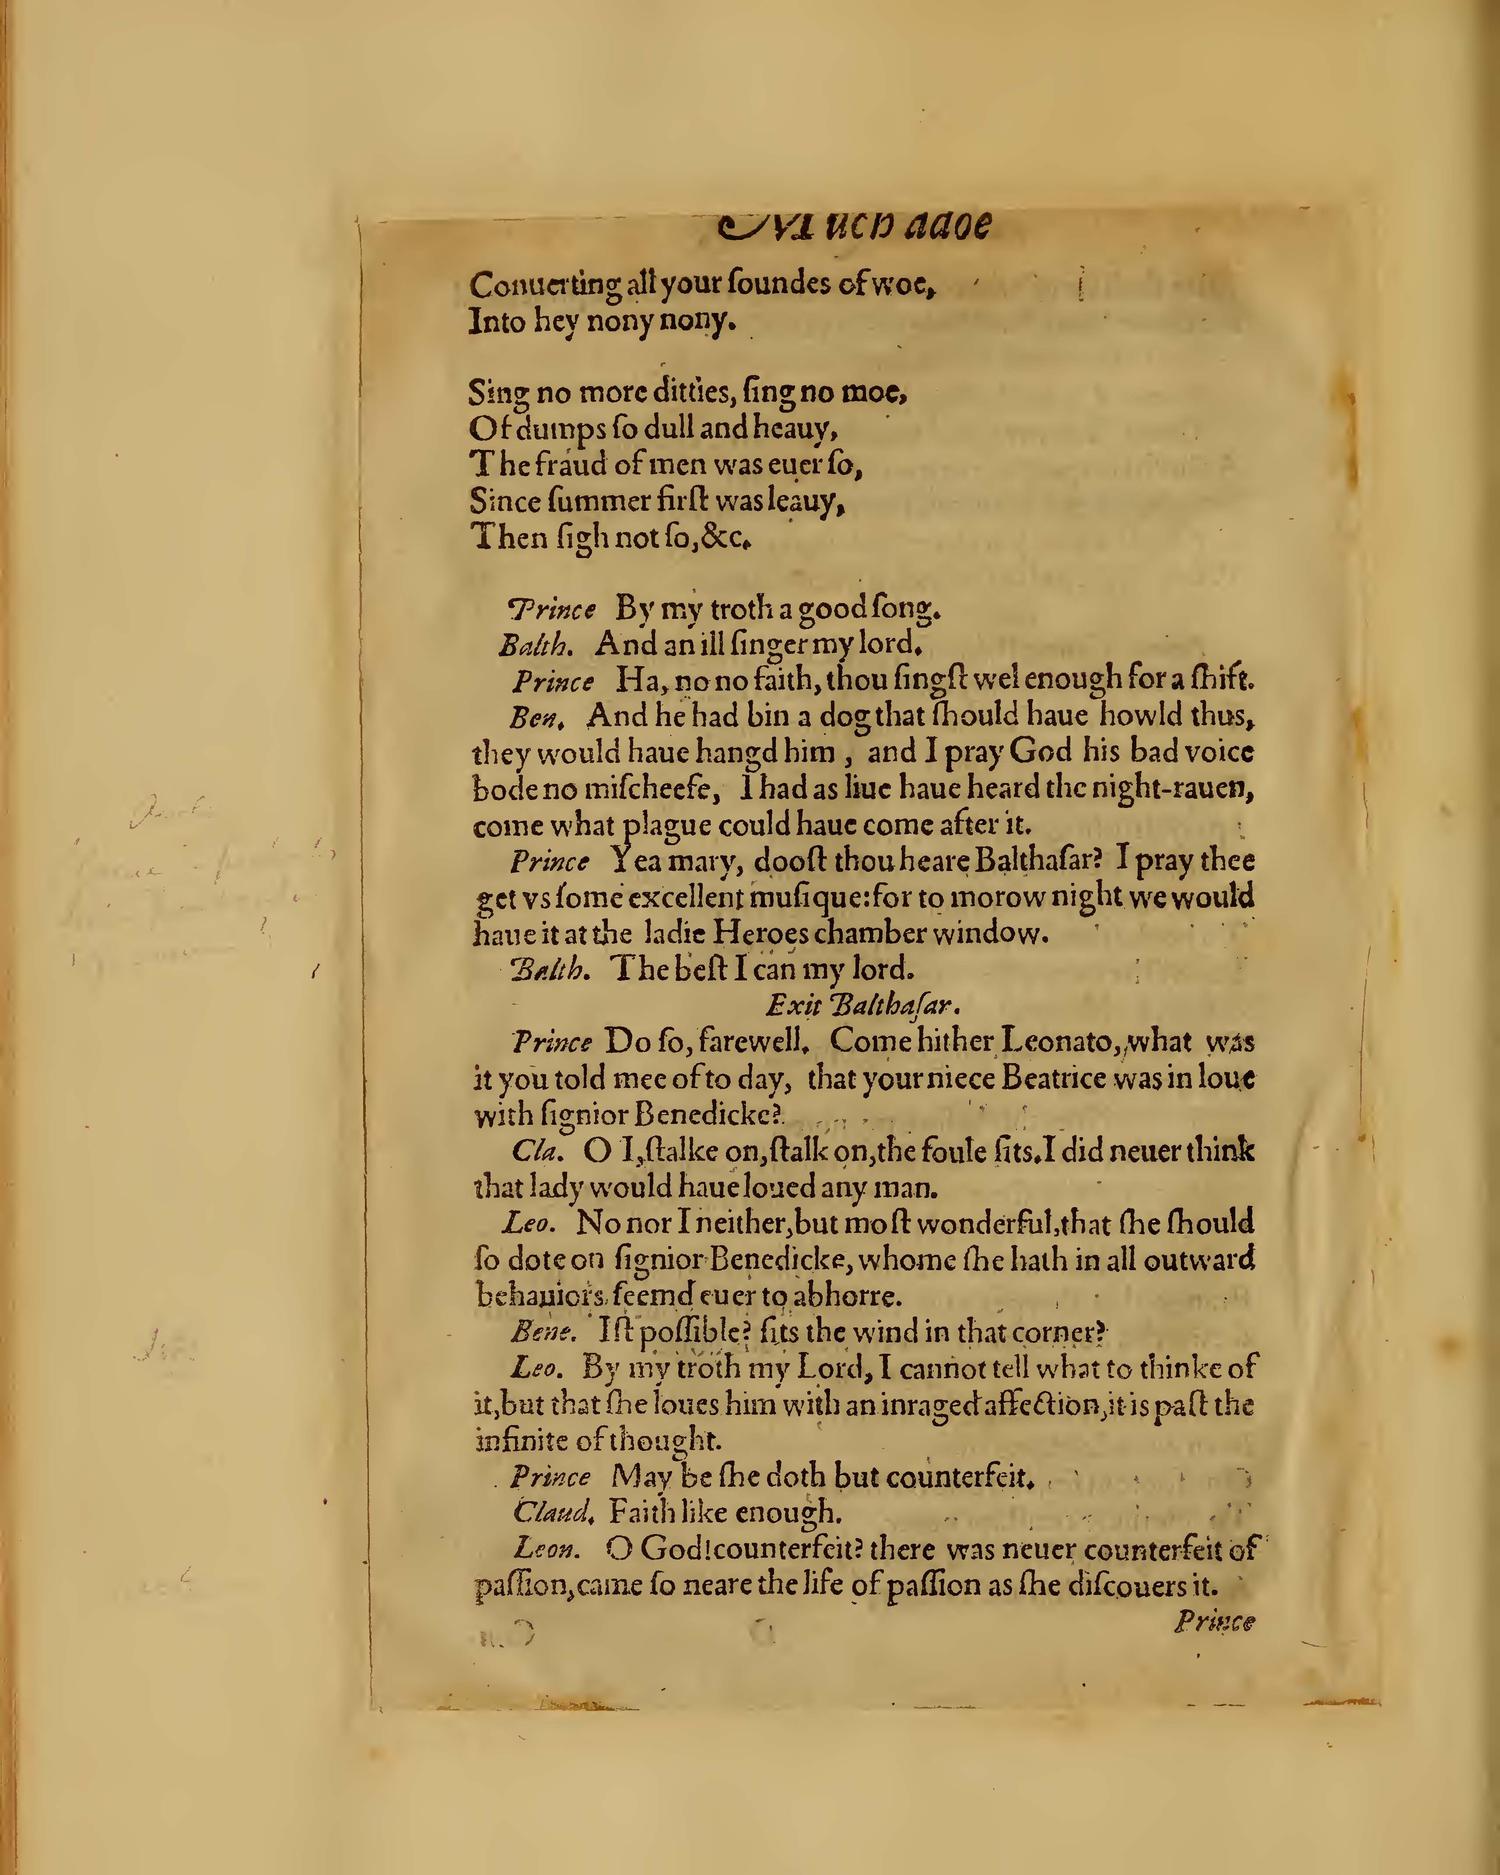 Much adoe
Conuerting all your ſoundes of woe,
Into hey nony nony.
Sing no more ditties, ſing no moe,
Of dumps ſo dull and heauy,
The fraud of men was euer ſo,
Since ſummer firſt was leauy,
Then ſigh not ſo,&c.
Prince By my troth a good ſong.
Balth. And an ill ſinger my lord.
Prince Ha, no no faith, thou ſingſt wel enough for a ſhift.
Ben. And he had bin a dog that ſhould haue howld thus,
they would haue hangd him , and I pray God his bad voice
bode no miſcheefe, I had as liue haue heard the night-rauen,
come what plague could haue come after it.
Prince Yea mary, dooſt thou heare Balthaſar? I pray thee
get vs ſome excellent muſique:for to morow night we would
haue it at the ladie Heroes chamber window.
Balth. The beſt I can my lord.
Exit Balthaſar.
Prince Do ſo, farewell. Come hither Leonato, what was
it you told mee of to day, that your niece Beatrice was in loue
with ſignior Benedicke?
Cla. O I,ſtalke on,ſtalk on,the foule ſits.I did neuer think
that lady would haue loued any man.
Leo. No nor I neither,but moſt wonderful,that ſhe ſhould
ſo dote on ſignior Benedicke, whome ſhe hath in all outward
behauiors ſeemd euer to abhorre.
Bene. Iſt poſſible? ſits the wind in that corner?
Leo. By my troth my Lord, I cannot tell what to thinke of
it,but that ſhe loues him with an inraged affection,it is paſt the
infinite of thought.
Prince May be ſhe doth but counterfeit.
Claud. Faith like enough.
Leon. O God!counterfeit? there was neuer counterfeit of
paſſion,came ſo neare the life of paſſion as ſhe diſcouers it.
Prince